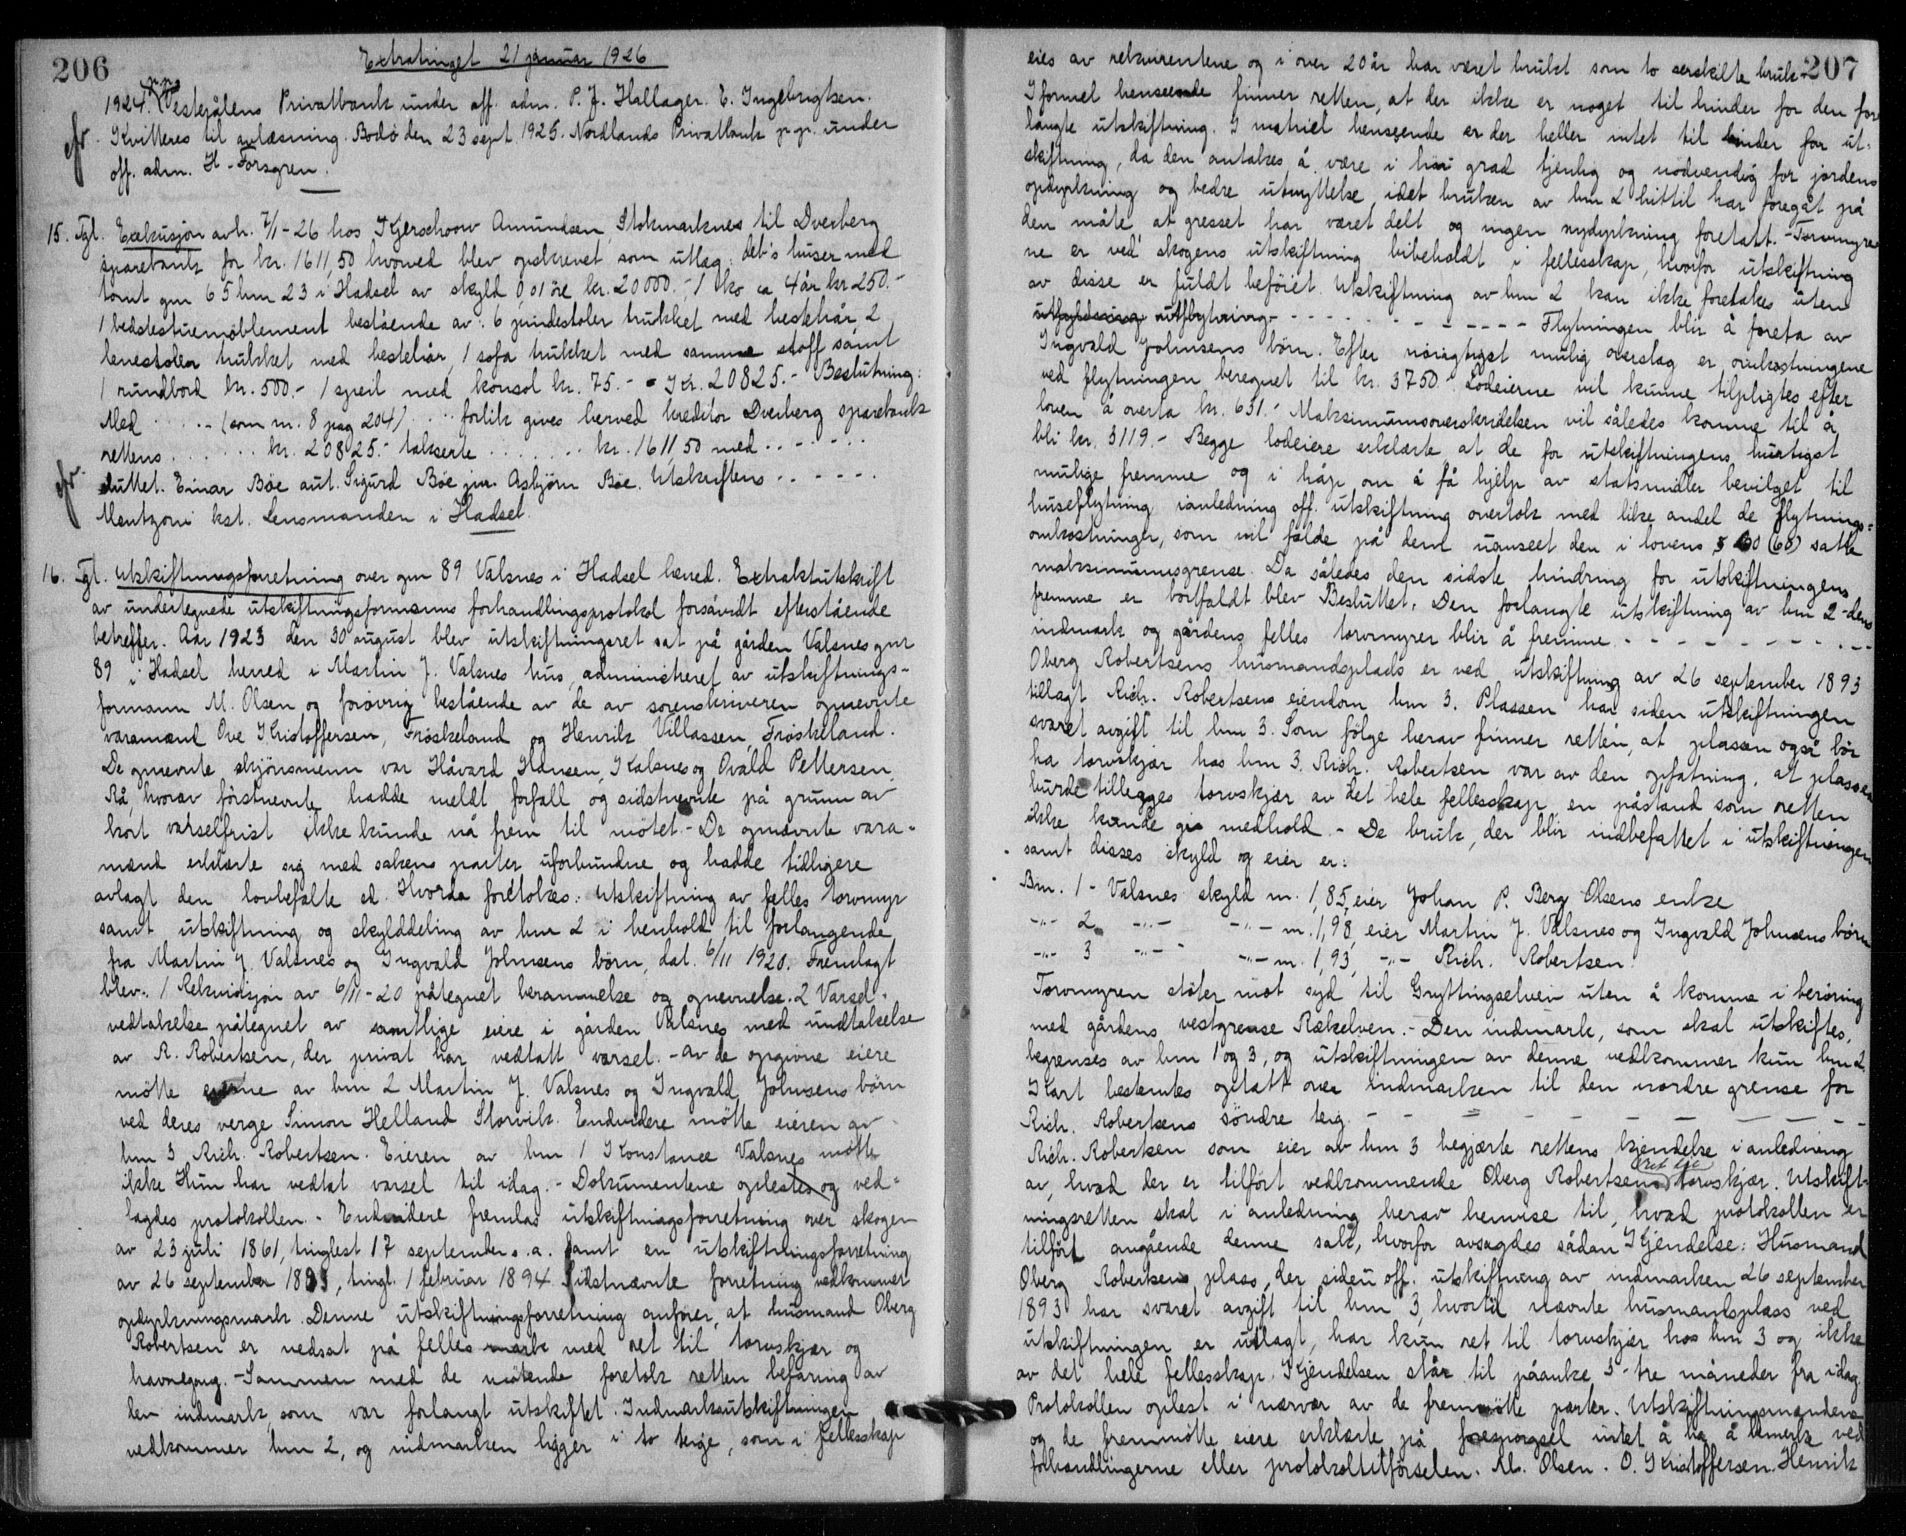 206
Extratinget 21 januar 1926
1924. pr. pr. Vesterålens Privatbank under off. adm. P. J. Hallager. E. Ingebrigtsen.
Kvitteres til avlæsning. Bodö den 23 sept. 1925. Nordlands Privatbank pr. pr. under
off. adm. H. Forsgren.
15. Tgl. Exekusjon avh. 7/1-26 hos Kjerschow Amundsen, Stokmarknes til Dverberg
sparebank for kr. 1611,50 hvorved blev opskrevet som utlæg: deb's huser med
tomt gnr 65 bnr 23 i Hadsel av skyld 0,01 öre kr. 20000.- 1 ko ca 4 år kr 250.-
1 bedstestuemöblement bestående av: 6 pindestoler trukket med hestehår, 2
lenestoler trukket med hestehår, 1 sofa trukket med samme stoff samt
1 rundbord kr. 500.- 1 speil med konsol kr. 75.- = Kr. 20825.- Beslutning:
Med ..... (som nr. 8 pag 204) ... forlik gives herved kreditor Dverberg sparebank
rettens ...... kr. 20825.- takserte ....... kr. 1611,50 med .......
sluttet. Einar Böe aut. Sigurd Böe jnr. Asbjörn Böe. Utskriftens ......
Mentzoni kst. Lensmanden i Hadsel.
16. Tgl. Utskiftningsforretning over gnr 89 Valsnes i Hadsel herred. Extraktutskrift
av undertegnede utskiftningsformanns forhandlingsprotokol forsåvidt efterstående
betreffer. Aar 1923 den 30 august blev utskiftningsret sat på gården Valsnes gnr
89 i Hadsel herred i Martin J. Valsnes hus, administreret av utskiftnings-
formann M. Olsen og forövrig bestående av de av sorenskriveren opnevnte
varamænd Ove Kristoffersen, Fröskeland og Henrik Villassen, Fröskeland.
De opnevnte skjönsmenn var Håvard Hansen, Kalsnes og Ovald Pettersen,
Rå, hvorav förstnevnte hadde meldt forfall og sidstnevnte på grunn av
kort varselfrist ikke kunde nå frem til mötet.- De opnævnte vara-
mænd erklærte sig med sakens parter uforbundne og hadde tidligere
avlagt den lovbefalte ed. Hvorda foretokes: Utskiftning av felles torvmyr
samt utskiftning og skylddeling av bnr 2 i henhold til forlangende
fra Martin J. Valsnes og Ingvald Johnsens börn, dat. 6/11 1920. Fremlagt
blev: 1 Rekvisisjon av 6/11-20 påtegnet berammelse og opnevnelse. 2 Varsel-
vedtakelse påtegnet av samtlige eiere i gården Valsnes med undtakelse
av R. Robertsen, der privat har vedtatt varsel.- av de opgivne eiere
mötte eierne av bnr 2 Martin J. Valsnes og Ingvald Johnsens börn
ved deres verge Simon Helland Storvik. Endvidere mötte eieren av
bnr 3 Rich. Robertsen. Eieren av bnr 1 Konstance Valsnes mötte
ikke. Hun har vedtat varsel til idag.- Dokumentene oplestes og ved-
lagdes protokollen.- Endvidere fremlaa utskiftningsforretning over skogen
av 23 juli 1861, tinglest 17 september s.a. samt en utskiftningsforretning
av 26 september 1893, tingl. 1 februar 1894. Sidstnævnte forretning vedkommer
opdyrkningsmark. Denne utskiftningsforretning anförer, at husmand Oberg
Robertsen er nedsat på felles mark med ret til torvskjær og
havnegang.- Sammen med de mötende foretok retten befaring av
den indmark, som var forlangt utskiftet. Indmarksutskiftningen
vedkommer bnr 2, og indmarken ligger i to teige, som i fellesskap
207
eies av rekvirentene og i over 20 år har været brukt som to serskilte bruk.
I formel henseende finner retten, at der ikke er noget til hinder for den for-
langte utskiftning. I matriel henseende er der heller intet til hinder for ut-
skiftning, da den antakes å være i höi grad tjenlig og nödvendig for jordens
opdyrkning og bedre utnyttelse, idet bruken av bnr 2 hittil har foregåt på
den måte at gresset har været delt og ingen nydyrkning foretatt.- Torvmyre-
ne er ved skogens utskiftning bibeholdt i fellesskap, hvorfor utskiftning
av disse er fuldt beföiet. Utskiftning av bnr 2 kan ikke foretakes uten
utflytning - - - - - - - - - - Flytningen blir å foreta av
Ingvald Johnsens börn. Efter nöiagtigst mulig overslag er omkostningene
ved flytningen beregnet til kr. 3750.- Lodeierne vil kunne tilpligtes efter
loven å overta kr. 631.- Maksimumsoverskridelsen vil således komme til å
bli kr. 3119.- Begge lodeiere erklærte at de for utskiftningens hurtigst
mulige fremme og i håp om å få hjelp av statsmidler bevilget til
huseflytning ianledning off. utskiftning overtok med like andel de flytnings-
omkostninger, som vil falde på dem uanseet den i lovens § 60 (68) satte
maksimumsgrense. Da således den sidste hindring for utskiftningens
fremme er bortfaldt blev Besluttet: Den forlangte utskiftning av bnr 2-dens
indmark og gårdens felles torvmyrer blir å fremme - - - - - - - -
Oberg Robertsens husmandsplads er ved utskiftning av 26 september 1893
tillagt Rich. Robertsens eiendom bnr 3. Plassen har siden utskiftningen
svaret avgift til bnr 3. Som fölge herav finner retten, at plassen også bör
ha torvskjær hos bnr 3. Rich. Robertsen var av den opfatning, at plassen
burde tillegges torvskjær av det hele fellesskap, en påstand som retten
ikke kunde gis medhold.- De bruk, der blir indbefattet i utskiftningen
samt disses skyld og eier er:
Bnr. 1 - Valsnes skyld m. 1,85, eier Johan P. Berg Olsens enke
-"- 2 -"- -"- m. 1,98, eier Martin J. Valsnes og Ingvald Johnsens börn
-"- 3 -"- -"- m. 1,93, -"- Rich. Robertsen.
Torvmyren stöter mot syd til Gryttingselven uten å komme i beröring
med gårdens vestgrense Rækelven.- Den indmark, som skal utskiftes,
begrenses av bnr 1 og 3, og utskiftningen av denne vedkommer kun bnr 2.
Kart bestemtes optatt over indmarken til den nordre grense for
Rich. Robertsens söndre teig. - - - - - - - - -
Rich. Robertsen som eier av bnr 3 begjærte rettens kjendelse ianledning
av, hvad der er tilfört vedkommende Oberg Robertsens torvskjær. Utskift-
ningsretten skal i anledning herav henvise til, hvad protokollen er
tilfört angående denne sak, hvorfor avsagdes sådan Kjendelse: Husmand
Oberg Robertsens plass, der siden off. utskiftning av indmarken 26 september
1893 har svaret avgift til bnr 3, hvortil nævnte husmandsplass ved
utskiftningen er utlagt, har kun ret til torvskjær hos bnr 3 og ikke
av det hele fellesskap. Kjendelsen står til påanke 3 - tre måneder fra idag.
Protokollen oplest i nærvær av de fremmötte parter. Utskiftningsmændene
og de fremmötte eiere erklærte på forespörgsel intet å ha å bemerke ved
forhandlingerne eller protokoltilförselen. M. Olsen. O. Kristoffersen. Henrik